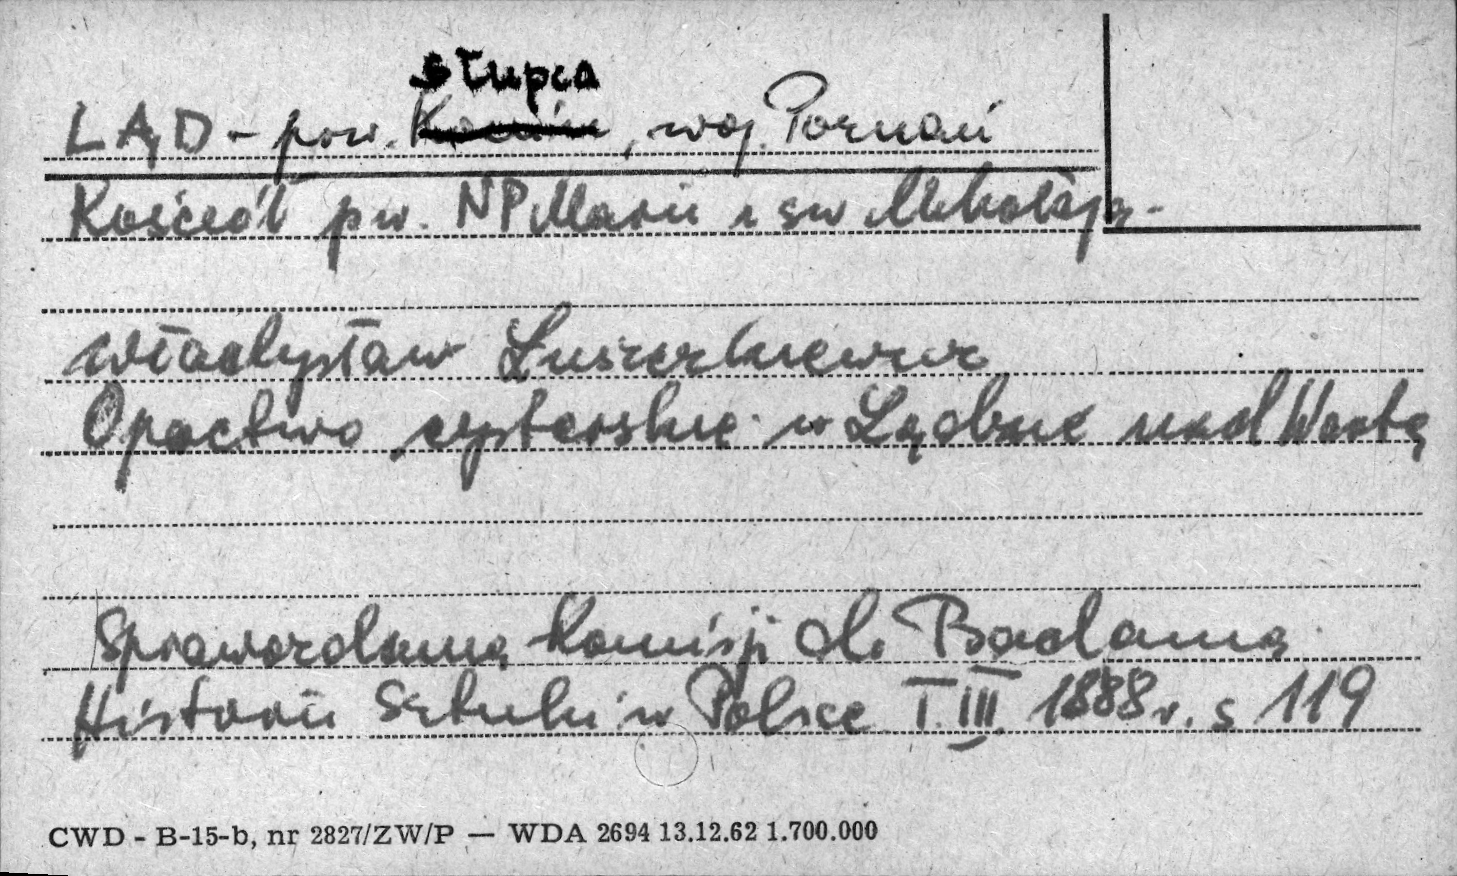 Słupca
LĄD - pow. Konin, woj. Poznań
Kościół p.w. NPMarii i św Mikołaja -
Władysław Łuszczkiewicz
Opactwo cysterskie w Lądzie nad Wartą
Sprawozdania Komisji do Badania
Historii Sztuki w Polsce T. III. 1888 r. s 119
CWD - B-15-b, nr 2827/ZW/P — WDA 2694 13.12.62 1.700.000